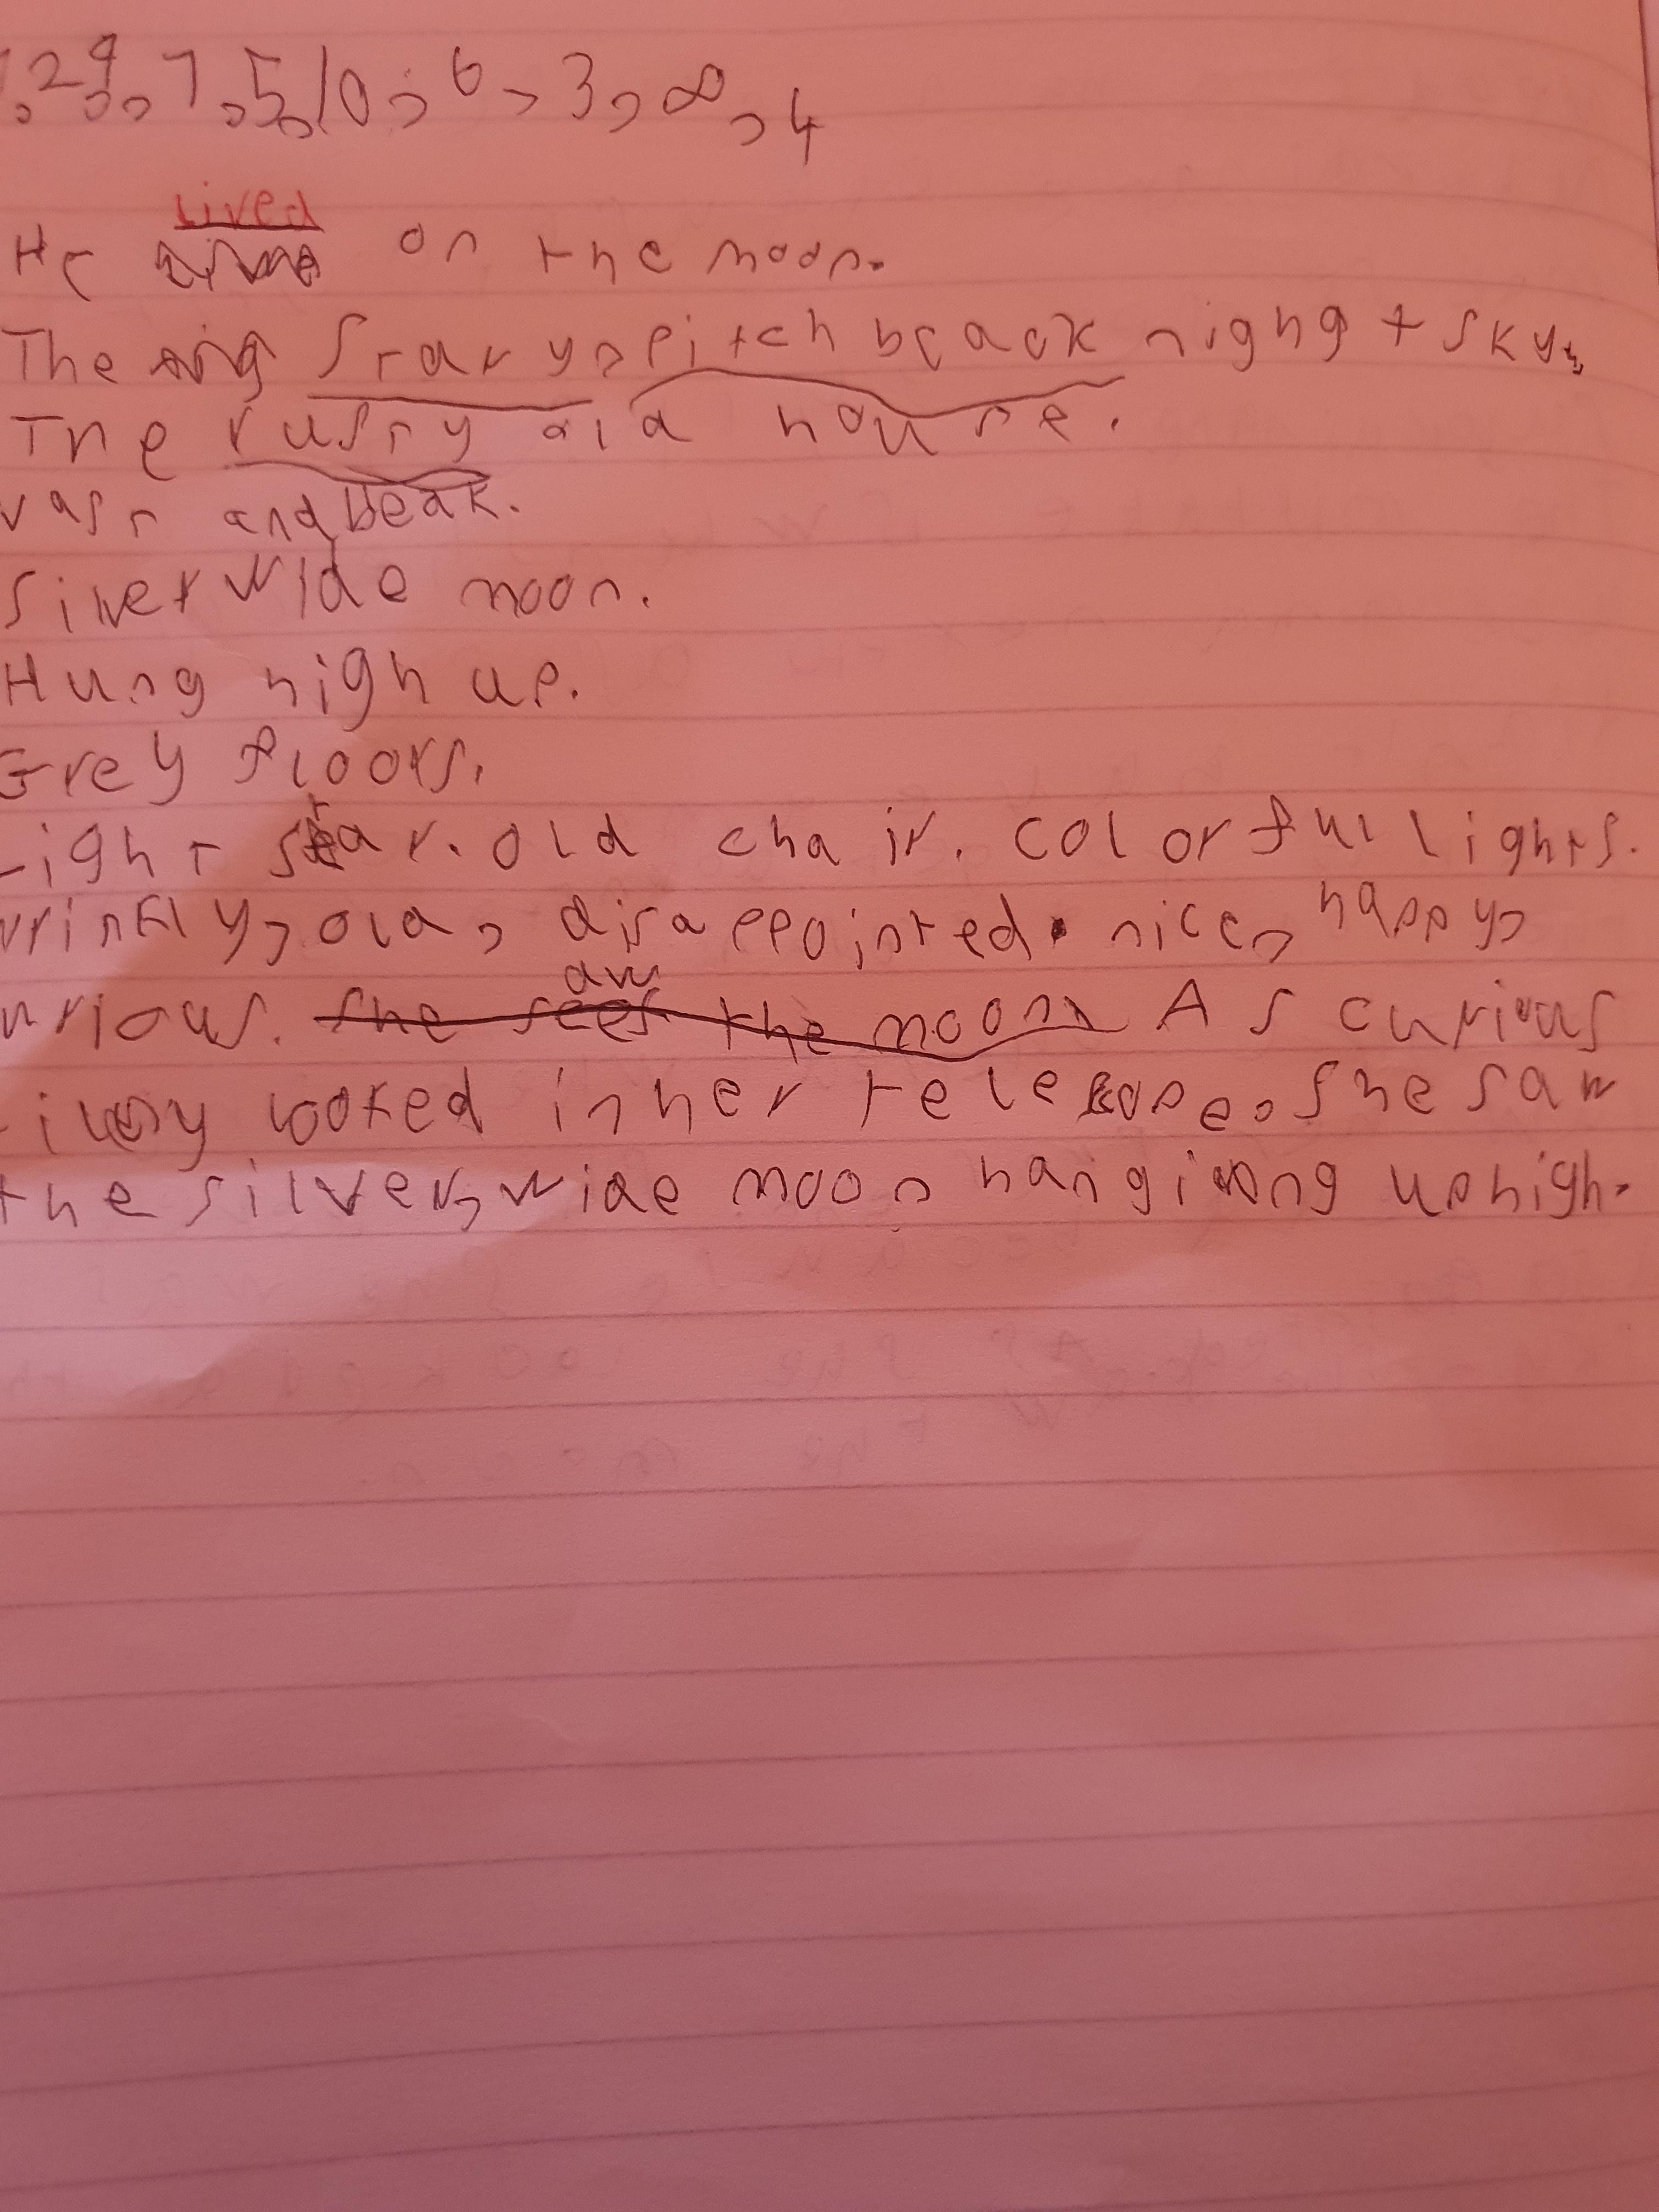 1,2,9,7,5,10,6,3,8,4
He lived on the moon.
The stary, pitch bcack nighgt sky,
The rusty old house.
vast and beak.
Silver wide moon.
Hung high up.
Grey floors.
Light star. old chair. colorful lights.
wrinkly, old, disappointed. nice, happy,
urious. She saw the moon. As curious
looked in her telescope. She saw
the silver, wide moon hanging up high.